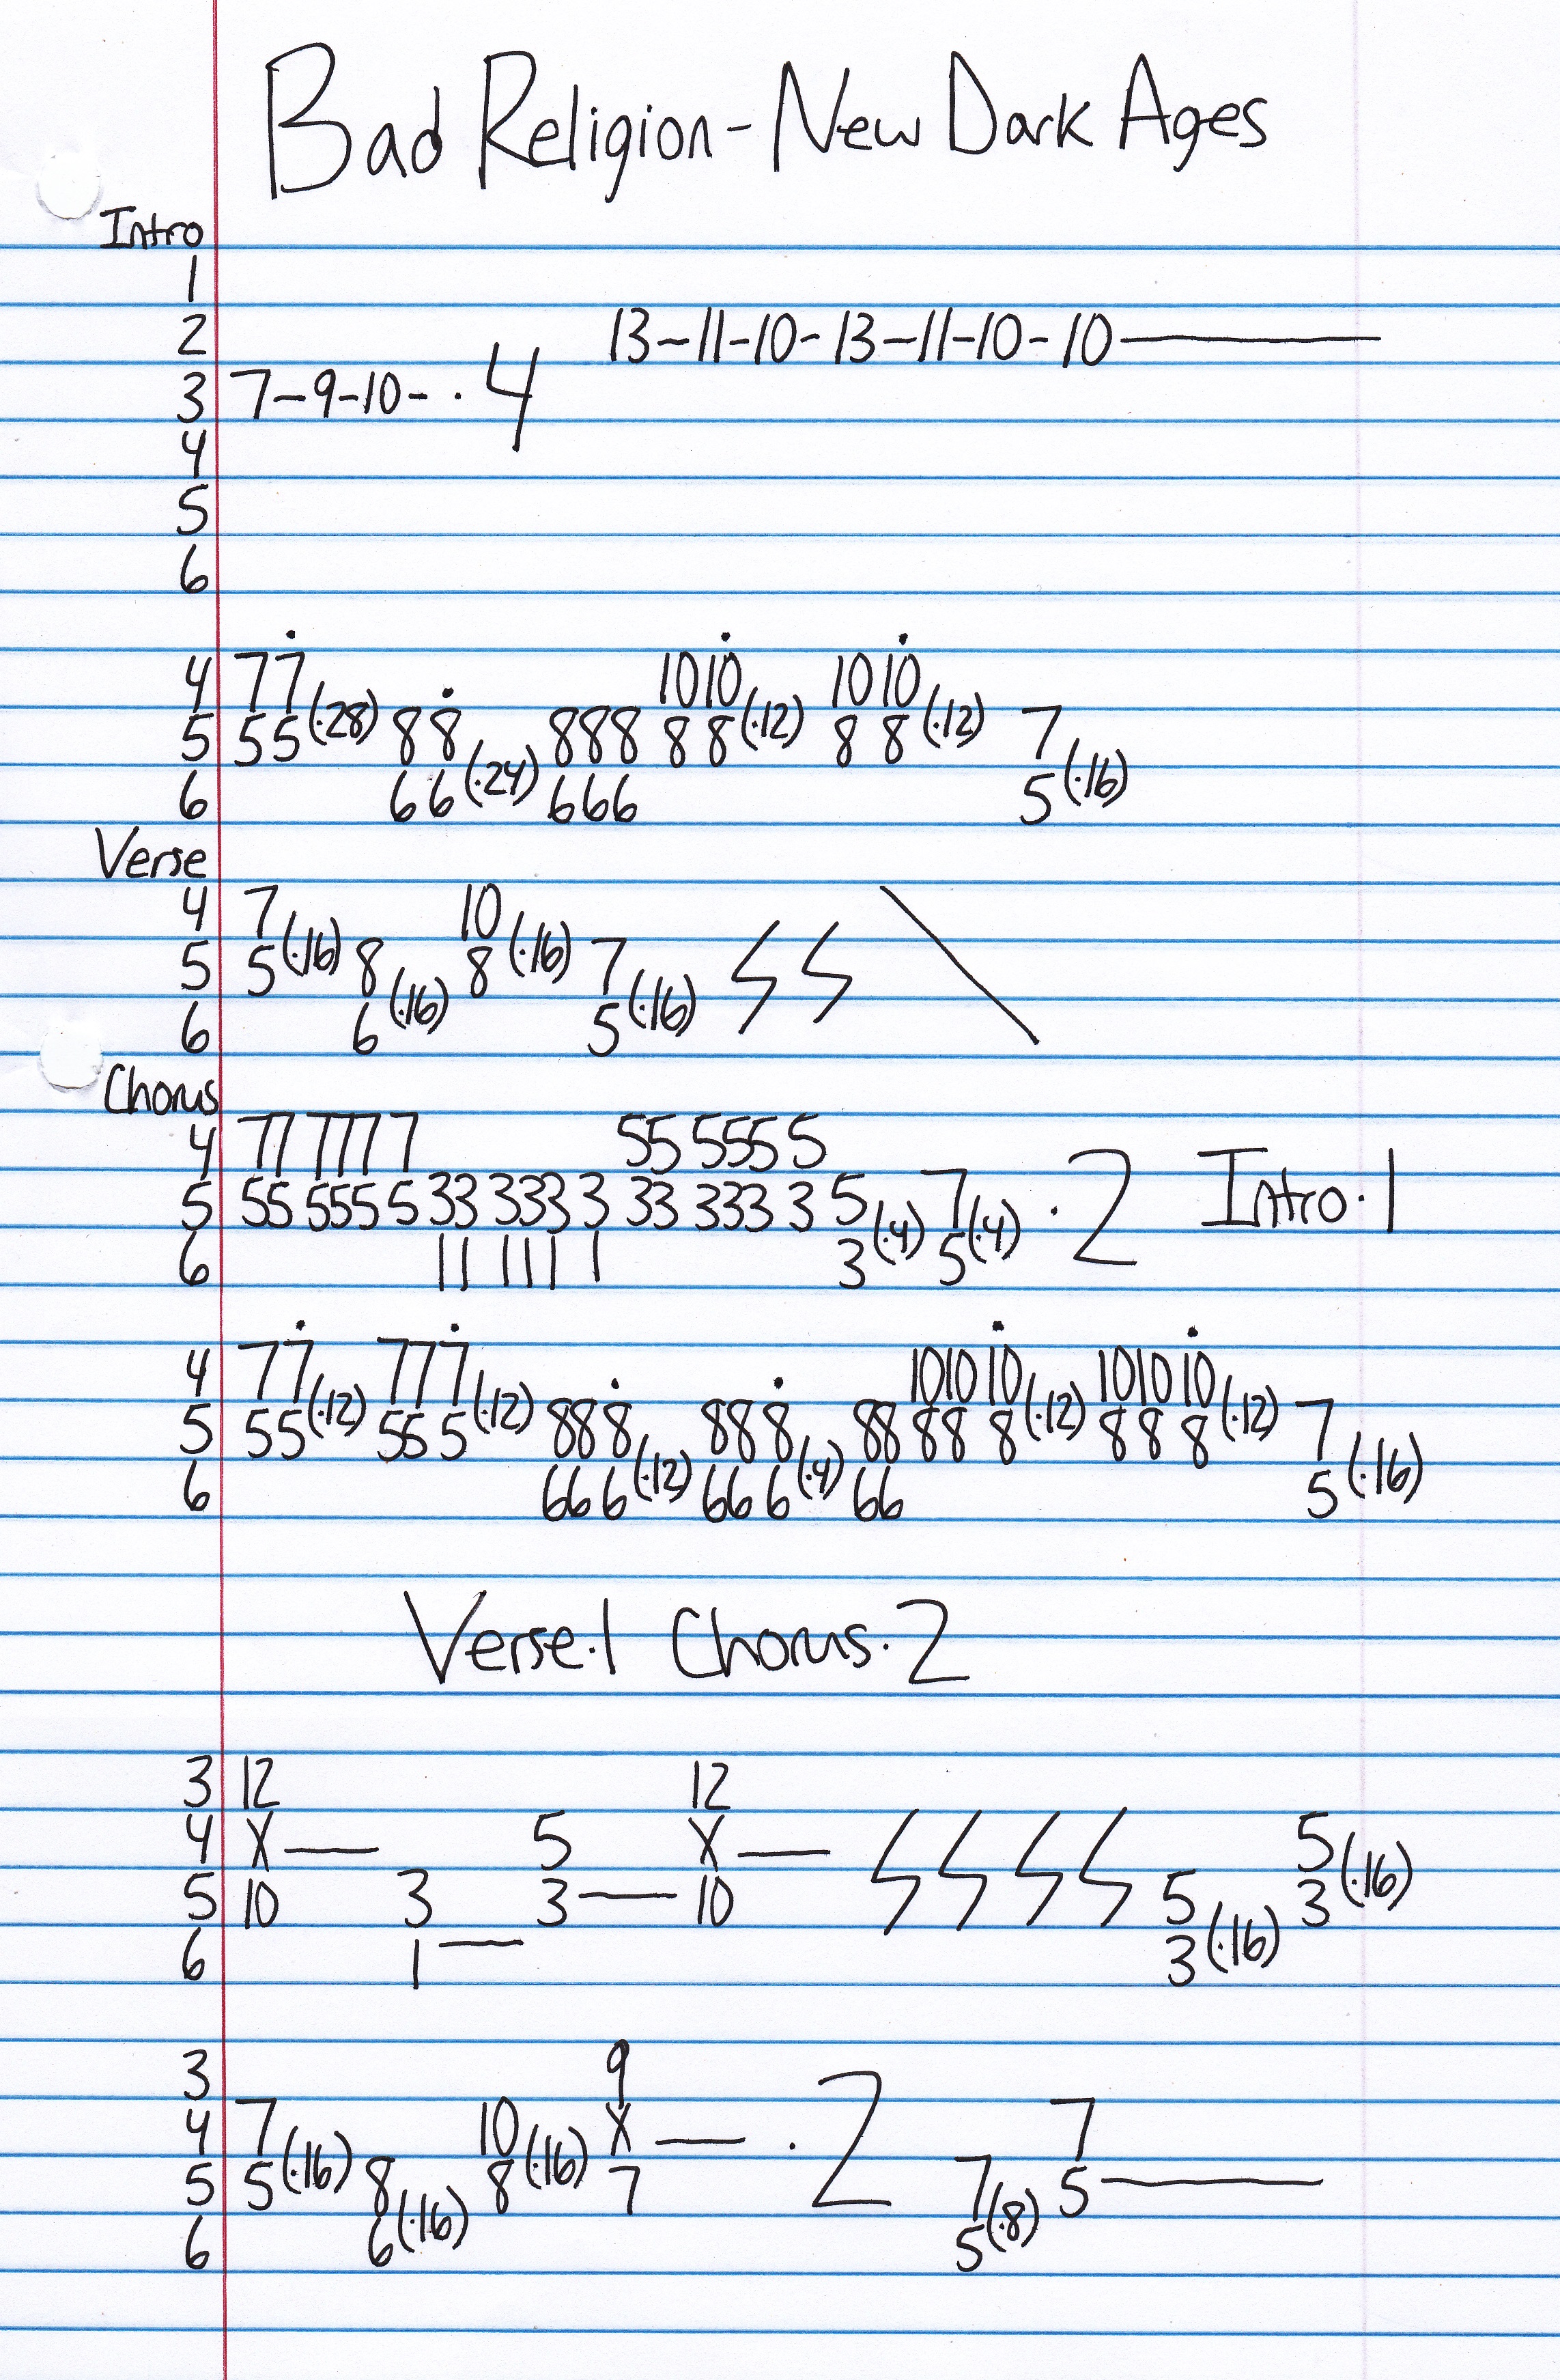 Bad Religion - New Dark Ages
Intro
1
2 13-11-10-13-11-10-10—
3 7-9-10- · 4
4
5
6
4 7 7 10 10 10 10
5 5 5 (·28) 8 8 8 8 8 8 8 (·12) 8 8 (·12) 7
6 6 6 (·24) 6 6 6 5 (·16)
Verse
4 7 10
5 5 (·16) 8 8 (·16) 7
6 6 (·16) 5 (·16)
Chorus
4 77 777 7 55 555 5
5 55 555 5 33 333 3 33 333 3 5 7 · 2 Intro·1
6 11 111 1 3 (·4) 5 (·4)
4 7 7 7 7 7 10 10 10 10 10 10
5 5 5 (·12) 5 5 5 (·12) 8 8 8 8 8 8 8 8 8 8 8 (·12) 8 8 8 (·12) 7
6 6 6 6 (·12) 6 6 6 (·4) 6 6 5 (·16)
Verse·1 Chorus·2
3 12 12
4 X — 5 X — 5
5 10 3 3 — 10 5 3 (·16)
6 1 — 3 (·16)
3 9
4 7 10 X — · 2 7
5 5 (·16) 8 8 (·16) 7 7 5 —
6 6 (·16) 5 (·8)